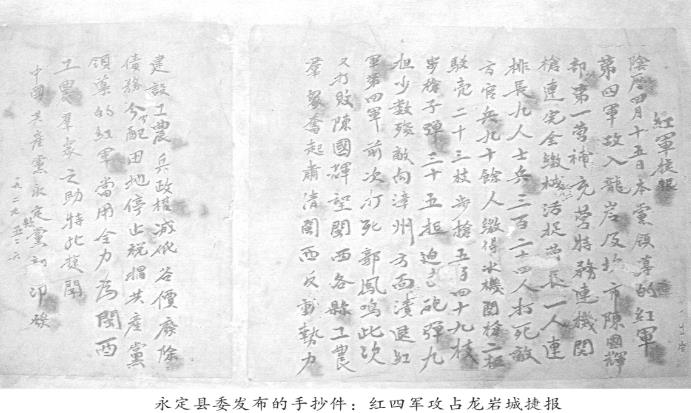 红军捷报
陰厯四月十五日本黨領導的红軍
第四軍攻入龍岩及坎市陳國輝
部第一营補充营特務連機関
槍連完全缴械活捉营長一人連
排長九人士兵三百二十四人打死敵
方官兵九十餘人缴得水機関槍二挺
駁壳二十三枝步槍五百四十九枝
步槍子弹三十五担迫击砲弹九
担少數殘敵向漳州方面潰退红
軍第四軍前次打死郭鳳鳴此次
又打敗陳國輝望閩西各縣工農
羣衆奮起肃清閩西反動勢力
建設工農兵政權減低谷價廢除
債務分配田地停止税捐共産黨
領導的红軍當用全力為閩西
工農羣衆之助特此捷聞
中國共産黨永定縣委 印發
一九二九 五·六
永定县委发布的手抄件：红四军攻占龙岩城捷报